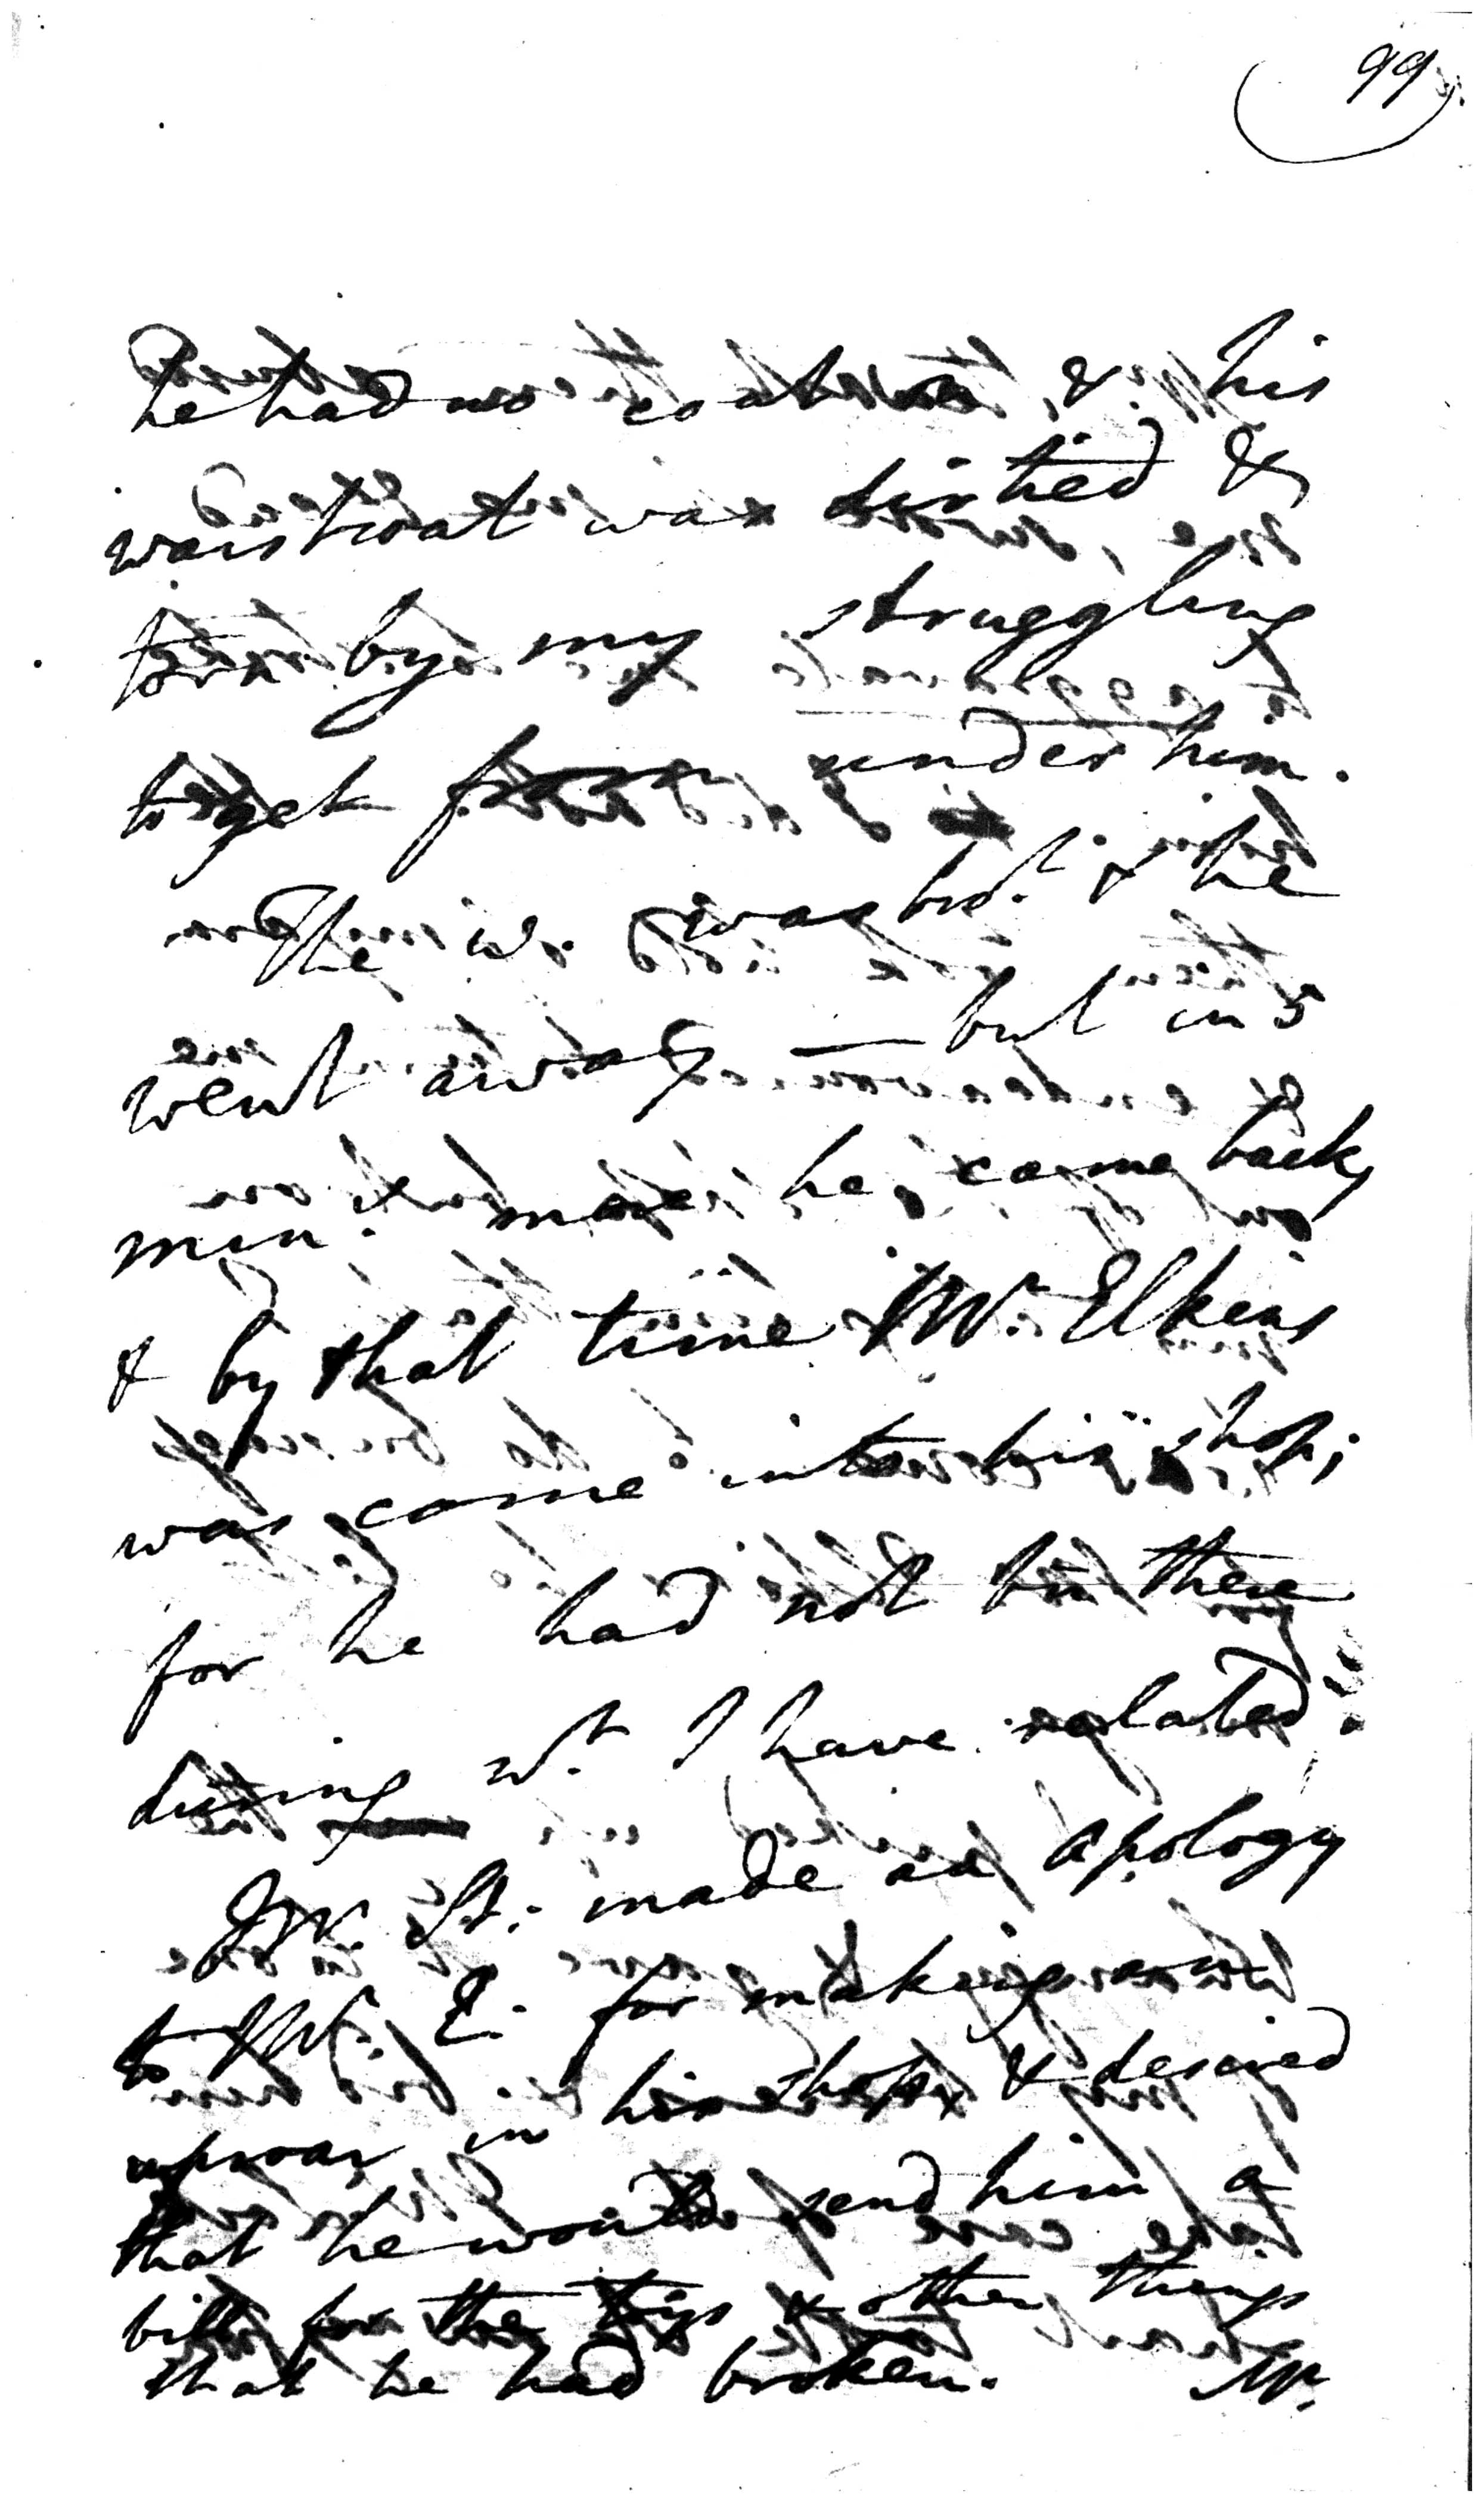 99
he had no coat on & his
waistcoat was dirtied &
torn by my struggling
to get from under him.
The w. was bro.t & he
went away — but in 5
min. more he came back,
& by that time Mr. Elkins
was come into his shop;
for he had not bn there
during wt. I have related.
St. made an apology
to Mr. E. for making an
uproar in his shop, & desired
that he would send him a
bill for the & other things
that he had broken. Mr.